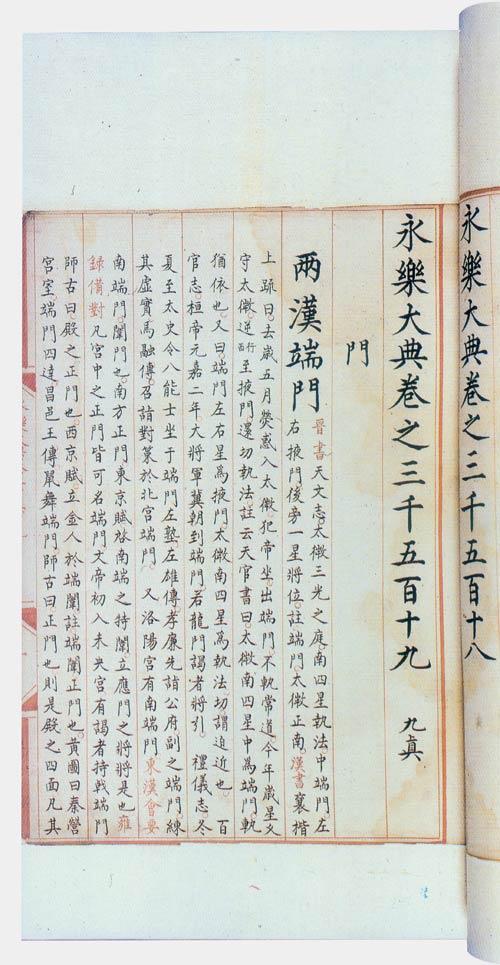 永樂大典卷之三千五百十八
永樂大典卷之三千五百十九 九真
門
兩漢端門
晉書天文志太微三光之庭南四星執法中端門左
右掖門後旁一星將位註端門太微正南漢書襄楷
上疏曰去歲五月熒惑入太微犯帝坐出端門不軌常道今年歲星久
守太微逆行西至掖門還切執法註云天官書曰太微南四星中為端門軌
猶依也又曰端門左右星為掖門太微南四星為執法切謂迫近也 百
官志桓帝元嘉二年大將軍冀朝到端門若龍門謁者將引 禮儀志冬
夏至太史令八能士坐于端門左塾左雄傳孝廉先詣公府副之端門練
其虛實馬融傳召詣對策於北宮端門 又洛陽宮有南端門東漢會要
南端門闈門也南方正門東京賦啟南端之特闈立應門之將將是也雍
錄備對凡宮中之正門皆可名端門文帝初入未央宮有謁者持戟端門
師古曰殿之正門也西京賦立金人於端闈註端闈正門也黃圖曰秦營
宮室端門四達昌邑王傳嚴舞端門師古曰正門也則是殿之四面凡其